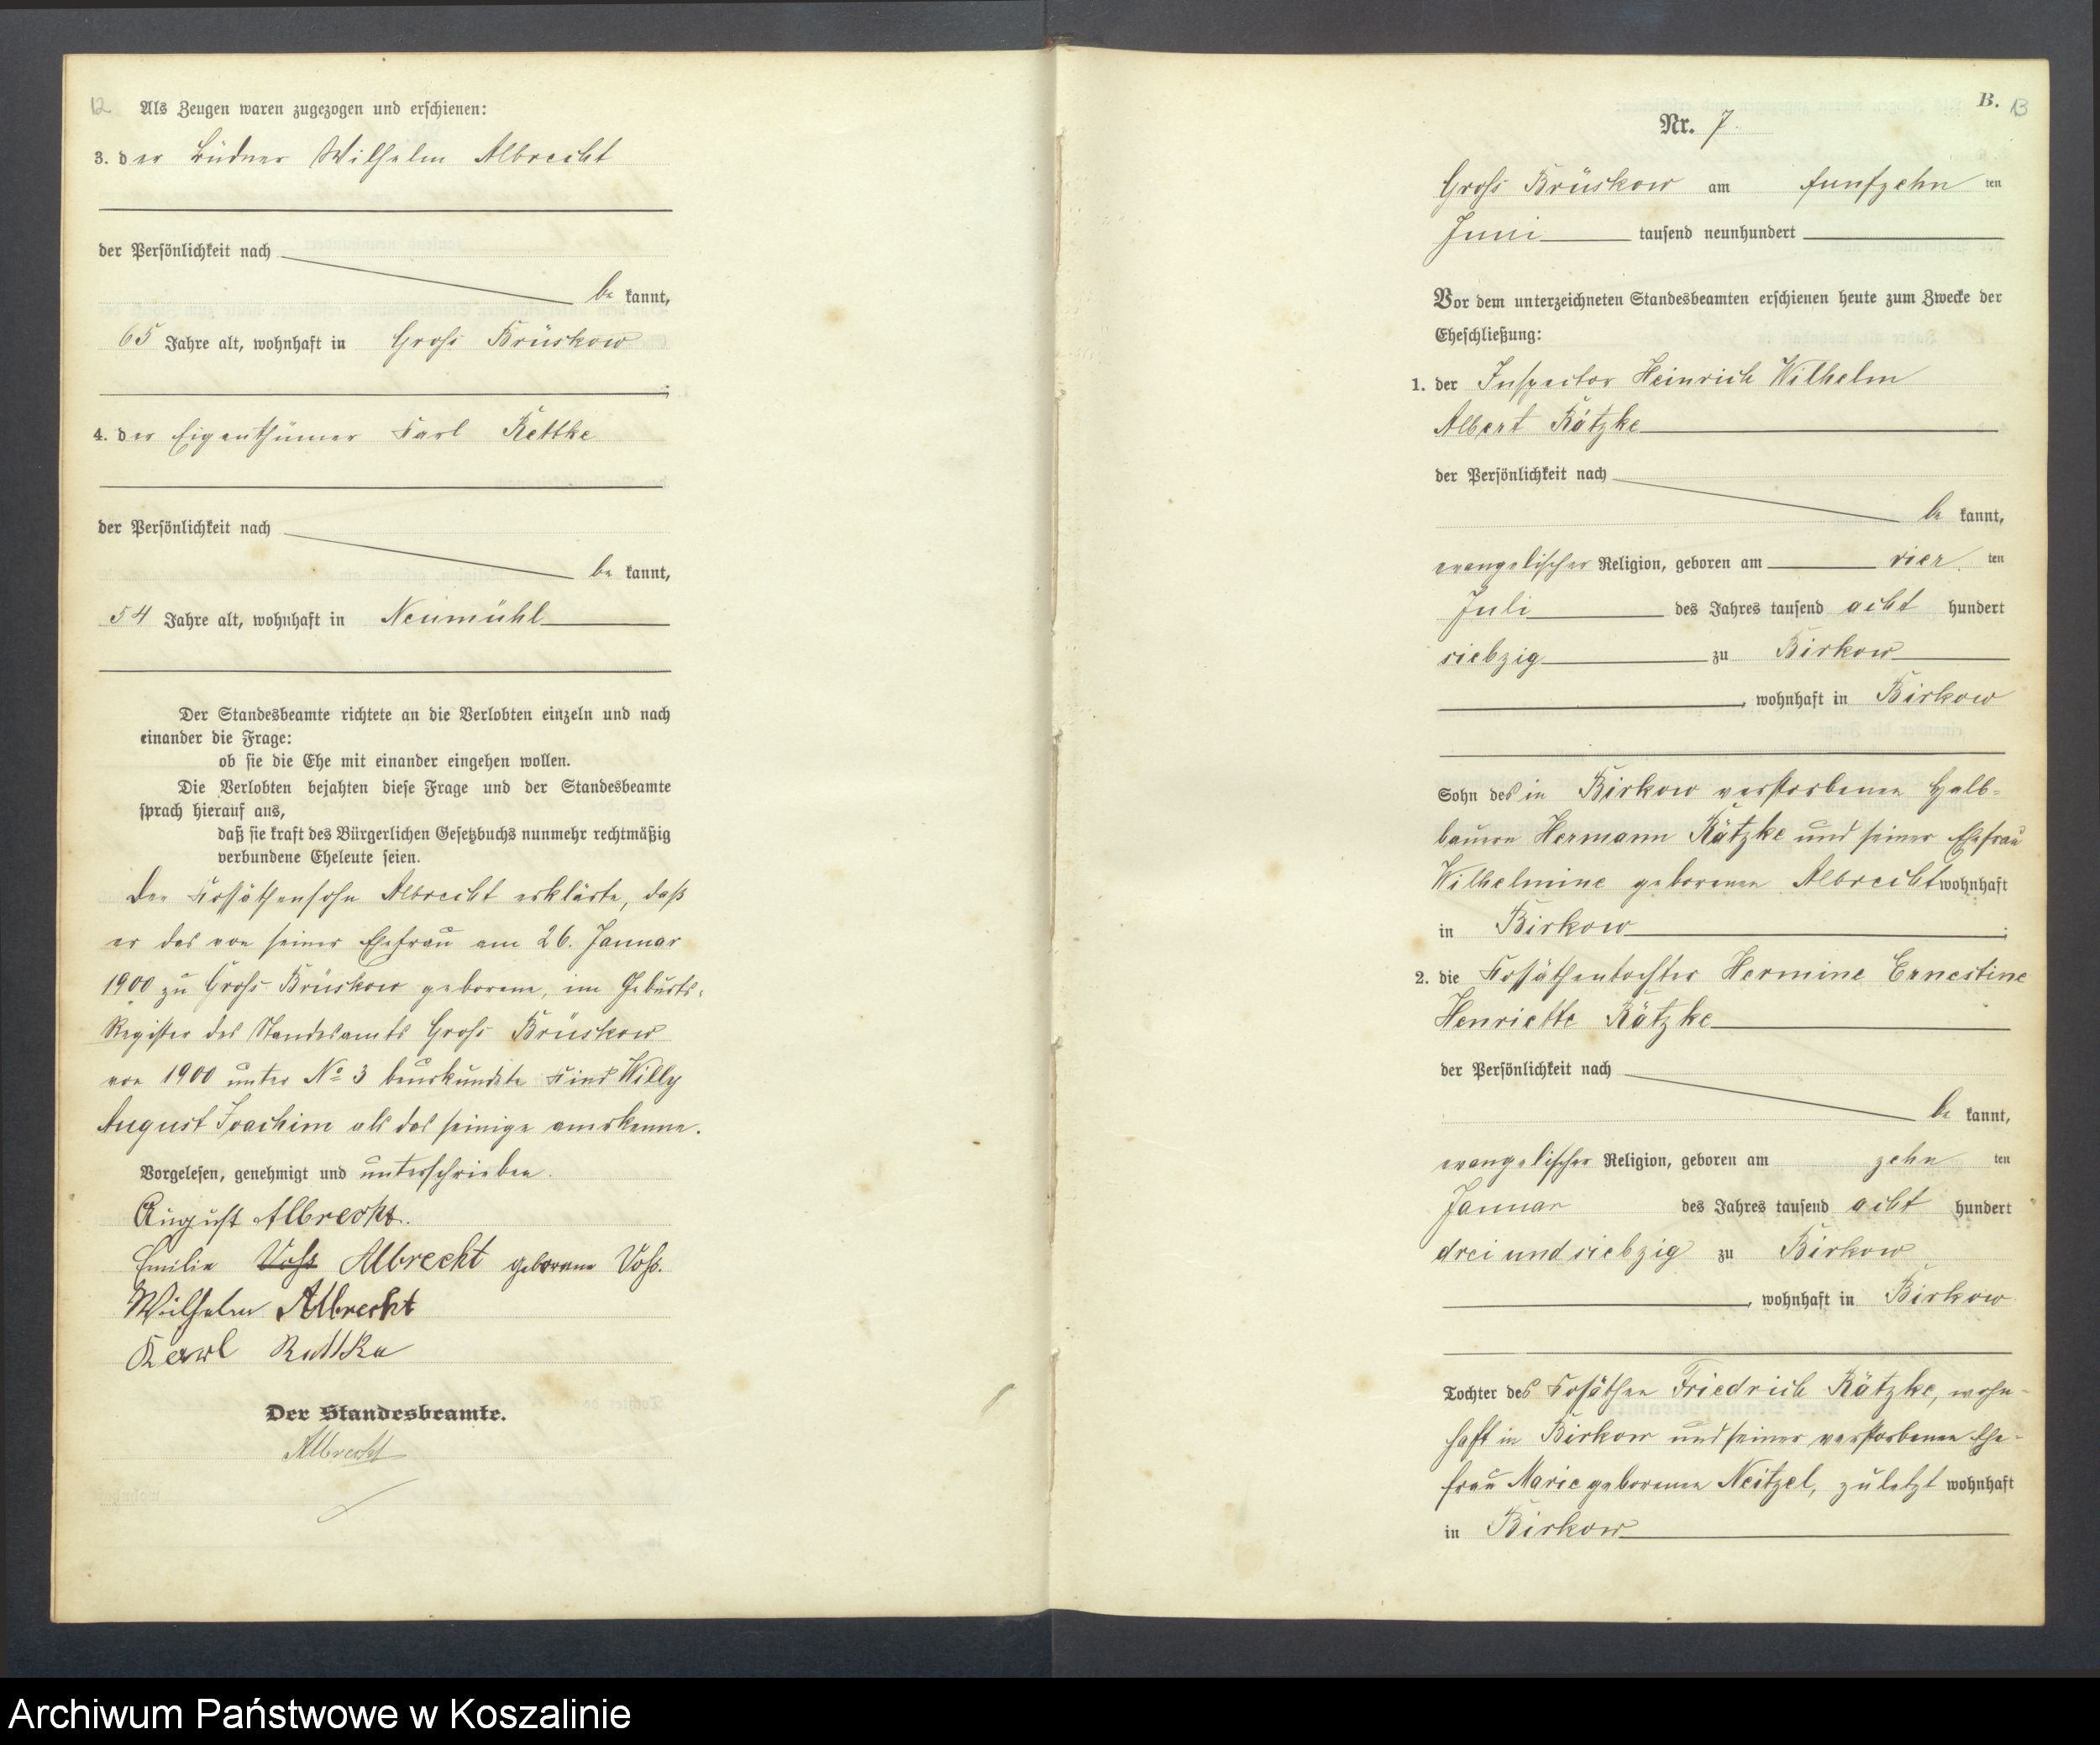 12
Als Zeugen waren zugezogen und erschienen:
3. der Büdner Wilhelm Albrecht
der Persönlichkeit nach
be kannt,
65 Jahre alt, wohnhaft in Groß Brüskow
;
4. der Eigenthümer Karl Rettke
der Persönlichkeit nach
be kannt,
54 Jahre alt, wohnhaft in Neumühl
Der Standesbeamte richtete an die Verlobten einzeln und nach
einander die Frage:
ob sie die Ehe mit einander eingehen wollen.
Die Verlobten bejahten diese Frage und der Standesbeamte
sprach hierauf aus,
daß sie kraft des Bürgerlichen Gesetzbuchs nunmehr rechtmäßig
verbundene Eheleute seien.
Der Kossäthensohn Albrecht erklärte, daß
er das von seiner Ehefrau am 26. Januar
1900 zu Groß Brüskow geborene, im Geburts-
Register des Standesamts Groß Brüskow
von 1900 unter No 3 beurkundete Kind Willy
August Joachim als das seinige anerkenne.
Vorgelesen, genehmigt und unterschrieben.
August Albrecht.
Emilie Voß Albrecht geborene Voß.
Wilhelm Albrecht
Karl Rettke
Der Standesbeamte.
Albrecht
B. 13
Nr. 7.
Groß Brüskow am funfzehn ten
Juni tausend neunhundert
Vor dem unterzeichneten Standesbeamten erschienen heute zum Zwecke der
Eheschließung:
1. der Inspector Heinrich Wilhelm
Albert Rätzke
der Persönlichkeit nach
be kannt,
evangelischer Religion, geboren am vier ten
Juli des Jahres tausend acht hundert
siebzig zu Birkow
, wohnhaft in Birkow
Sohn des in Birkow verstorbenen Halb-
bauern Hermann Rätzke und seiner Ehefrau
Wilhelmine geborenen Albrecht wohnhaft
in Birkow ;
2. die Kossäthentochter Hermine Ernestine
Henriette Rätzke
der Persönlichkeit nach
be kannt,
evangelischer Religion, geboren am zehn ten
Januar des Jahres tausend acht hundert
drei und siebzig zu Birkow
, wohnhaft in Birkow
Tochter des Kossäthen Friedrich Rätzke, wohn-
haft in Birkow und seiner verstorbenen Ehe-
frau Marie geborenen Neitzel, zuletzt wohnhaft
in Birkow
Archiwum Państwowe w Koszalinie